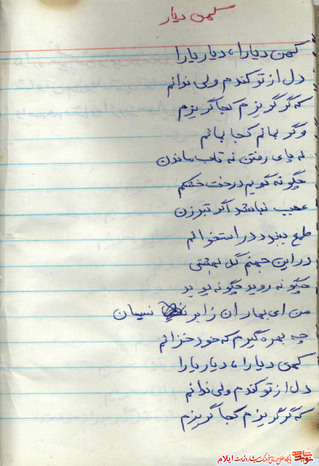 کهن دیار
کهن دیارا، دیار یارا
دل از تو کندم ولی ندانم
که گر گریزم کجا گریزم
وگر بمانم کجا بمانم
نه پای رفتن نه تاب ماندن
چگونه گویم درخت خشکم
عجب نباشد اگر تبرزن
طمع ببندد در استخوانم
در این جهنم گل بهشتی
چگونه روید چگونه بوید
من ای بهاران ز ابر نیسان
چه بهره گیرم که خود خزانم
کهن دیارا، دیار یارا
دل از تو کندم ولی ندانم
که گر گریزم کجا گریزم
ایلام